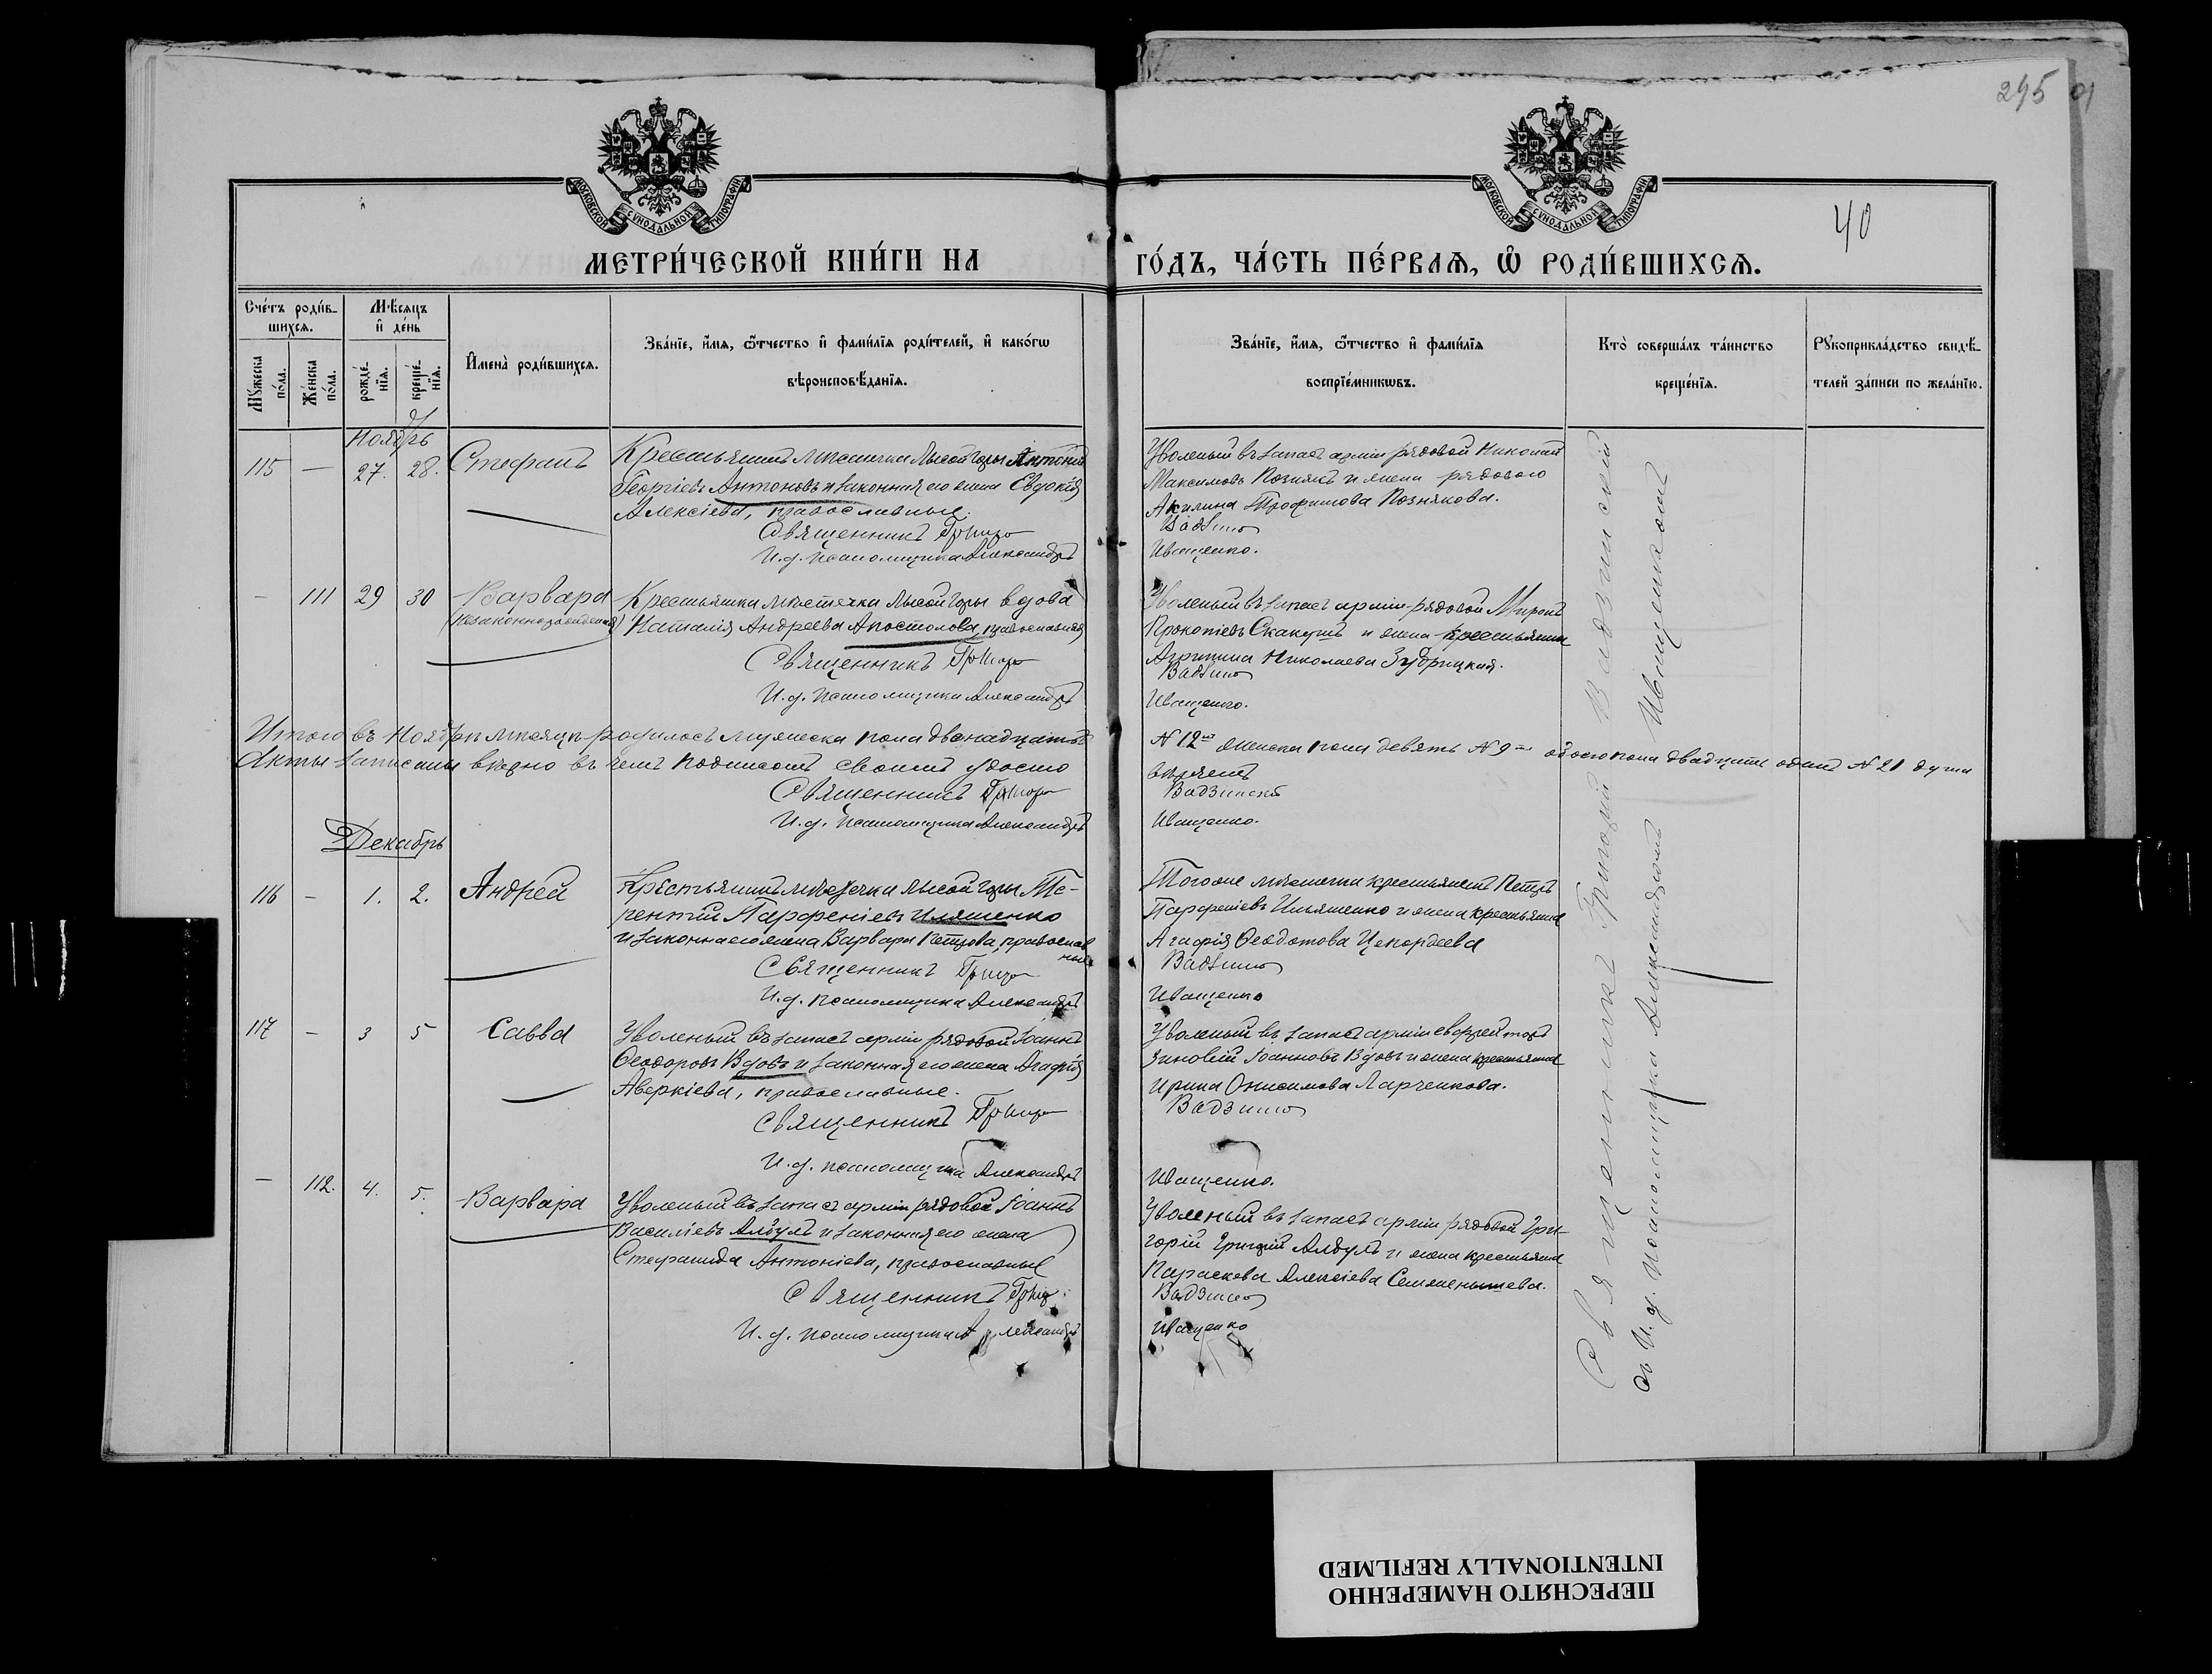 245
40
МОСКОВСКОЙ СѴНОДАЛЬНОЙ ТИПОГРАФІИ
МОСКОВСКОЙ СѴНОДАЛЬНОЙ ТИПОГРАФІИ
МЕТРИ́ЧЕСКОЙ КНИ́ГИ НА ГО́ДЪ, ЧА́СТЬ ПЕ́РВАѦ, Ѿ РОДИ́ВШИХСѦ.
Сче́тъ роди́в-
шихсѧ.
Мꙋ́жеска по́ла.
Же́нска по́ла.
Мѣ́сѧцъ
и҆ де́нь
рожде́-нїѧ.
креще́-нїѧ.
И҆мена̀ роди́вшихсѧ.
Зва́нїе, и҆́мѧ, ѻ҆́тчество и҆ фами́лїѧ роди́телей, и҆ како́гѡ
вѣроисповѣ́данїѧ.
Зва́нїе, и҆́мѧ, ѻ҆́тчество и҆ фами́лїѧ
воспрїе́мникѡвъ.
Кто̀ соверша́лъ та́инство
креще́нїѧ.
Рꙋкоприкла́дство свидѣ́-
телей за́писи по жела́нїю.
Ноябрь
115 — 27. 28. Стефанъ
Крестьянинъ мѣстечка Лысой Горы Антоній
Георгіевъ Антоновъ и законная его жена Евдокія
Алексіева, православные.
Священникъ Григорій
И. д. псаломщика Александръ
Уволеный въ запасъ арміи рядовой Николай
Максимовъ Познякъ и жена рядового
Акилина Трофимова Познякова.
Вадзинскій
Иващенко.
— 111 29 30 Варвара
(незаконнорожденная)
Крестьянка мѣстечка Лысой Горы вдова
Наталія Андреева Апостолова, православная
Священникъ Григорій
И. д. псаломщика Александръ
Уволеный въ запасъ арміи рядовой Миронъ
Прокопіевъ Скакунъ и жена крестьянина
Агрипина Николаева Зубрицкая.
Вадзинскій
Иващенко.
Итого въ Ноябрѣ мѣсяцѣ родилось мужеска пола двѣнадцать № 12 женска пола девять № 9 обоего пола двадцать одинъ № 21 душа
Акты записаны вѣрно въ чемъ подписомъ своимъ удосто
вѣряемъ
Священникъ Григорій Вадзинскій
И. д. псаломщика Александръ Иващенко.
Декабрь
116 — 1. 2. Андрей
Крестьянинъ мѣстечка Лысой Горы Те-
рентій Парфеніевъ Иляшенко
и законная его жена Варвара Петрова, православ
ные
Священникъ Григорій
И. д. псаломщика Александръ
Того же мѣстечка крестьянинъ Петръ
Парфеніевъ Ильяшенко и жена крестьянина
Агафія Ѳеодотова
Вадзинскій
Иващенко
117 — 3 5 Савва
Уволеный въ запасъ арміи рядовой Іоаннъ
Ѳеодоровъ Вдовъ и законная его жена Агафія
Аверкіева, православные.
Священникъ Григорій
И. д. псаломщика Александръ
Уволеный въ запасъ арміи ефрейторъ
Зиновій Іоанновъ Вдовъ и жена крестьянина
Ирина Онисимова Ларченкова.
Вадзинскій
Иващенко.
— 112. 4. 5. Варвара
Уволеный въ запасъ арміи рядовой Іоаннъ
Василіевъ Албулъ и законная его жена
Стефанида Антоніева, православные
Священникъ Григорій
И. д. псаломщика Александръ
Уволеный въ запасъ арміи рядовой Гри-
горій Григорій Албулъ и жена крестьянина
Параскева Алексіева
Вадзинскій
Иващенко
Священникъ Григорій Вадзинскій
съ И. д. псаломщика Александромъ Иващенкомъ
ПЕРЕСНЯТО НАМЕРЕННО
INTENTIONALLY REFILMED